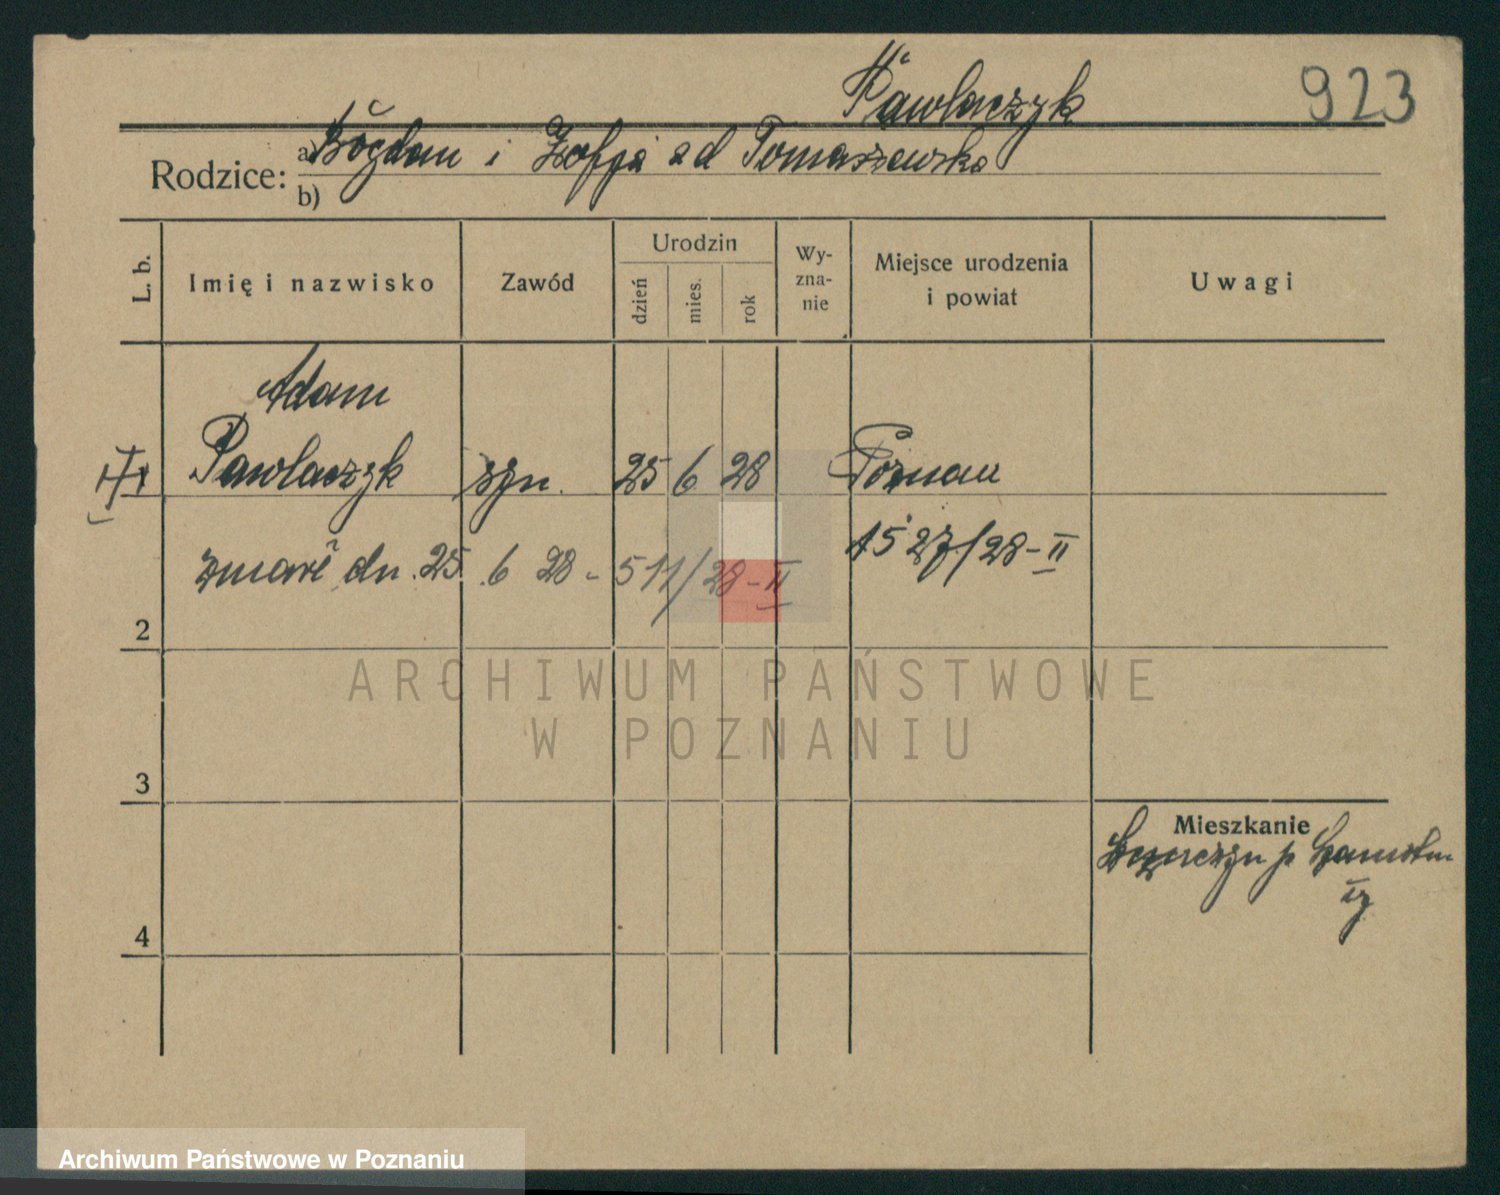 Pawlaczyk
923
Rodzice: a) Bogdan i Zofja zd Tomaszewska
b)
L. b.
Imię i nazwisko
Zawód
Urodzin
dzień
mies.
rok
Wy-
zna-
nie
Miejsce urodzenia
i powiat
Uwagi
Adam
1 Pawlaczyk syn. 25 6 28 Poznań
zmarł dn. 25 6 28 - 511/28-II
1527/28-II
2
ARCHIWUM PAŃSTWOWE
W POZNANIU
3
Mieszkanie
4
Archiwum Państwowe w Poznaniu